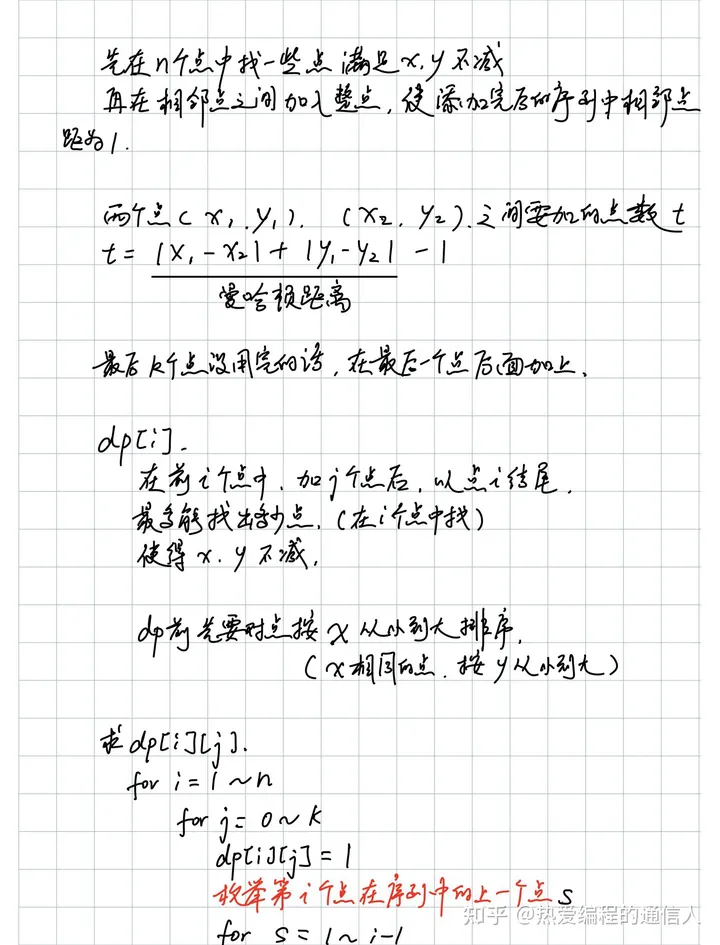 先在n个点中找一些点满足x,y不减
再在相邻点之间加入整点,使添加完后的序列中相邻点
距为1.
两个点(x₁,y₁), (x₂,y₂)之间要加的点数t
t= |x₁-x₂|+|y₁-y₂| -1
曼哈顿距离
最后k个点没用完的话,在最后一个点后面加上.
dp[i].
在前i个点中,加j个点后,以点i结尾,
最多能找出多少点.(在i个点中找)
使得x.y不减.
dp前先要对点按x从小到大排序,
(x相同的点,按y从小到大)
求dp[i][j].
for i=1~n
for j=0~k
dp[i][j]=1
枚举第i个点在序列中的上一个点s
for s=1~i-1
知乎 @热爱编程的通信人